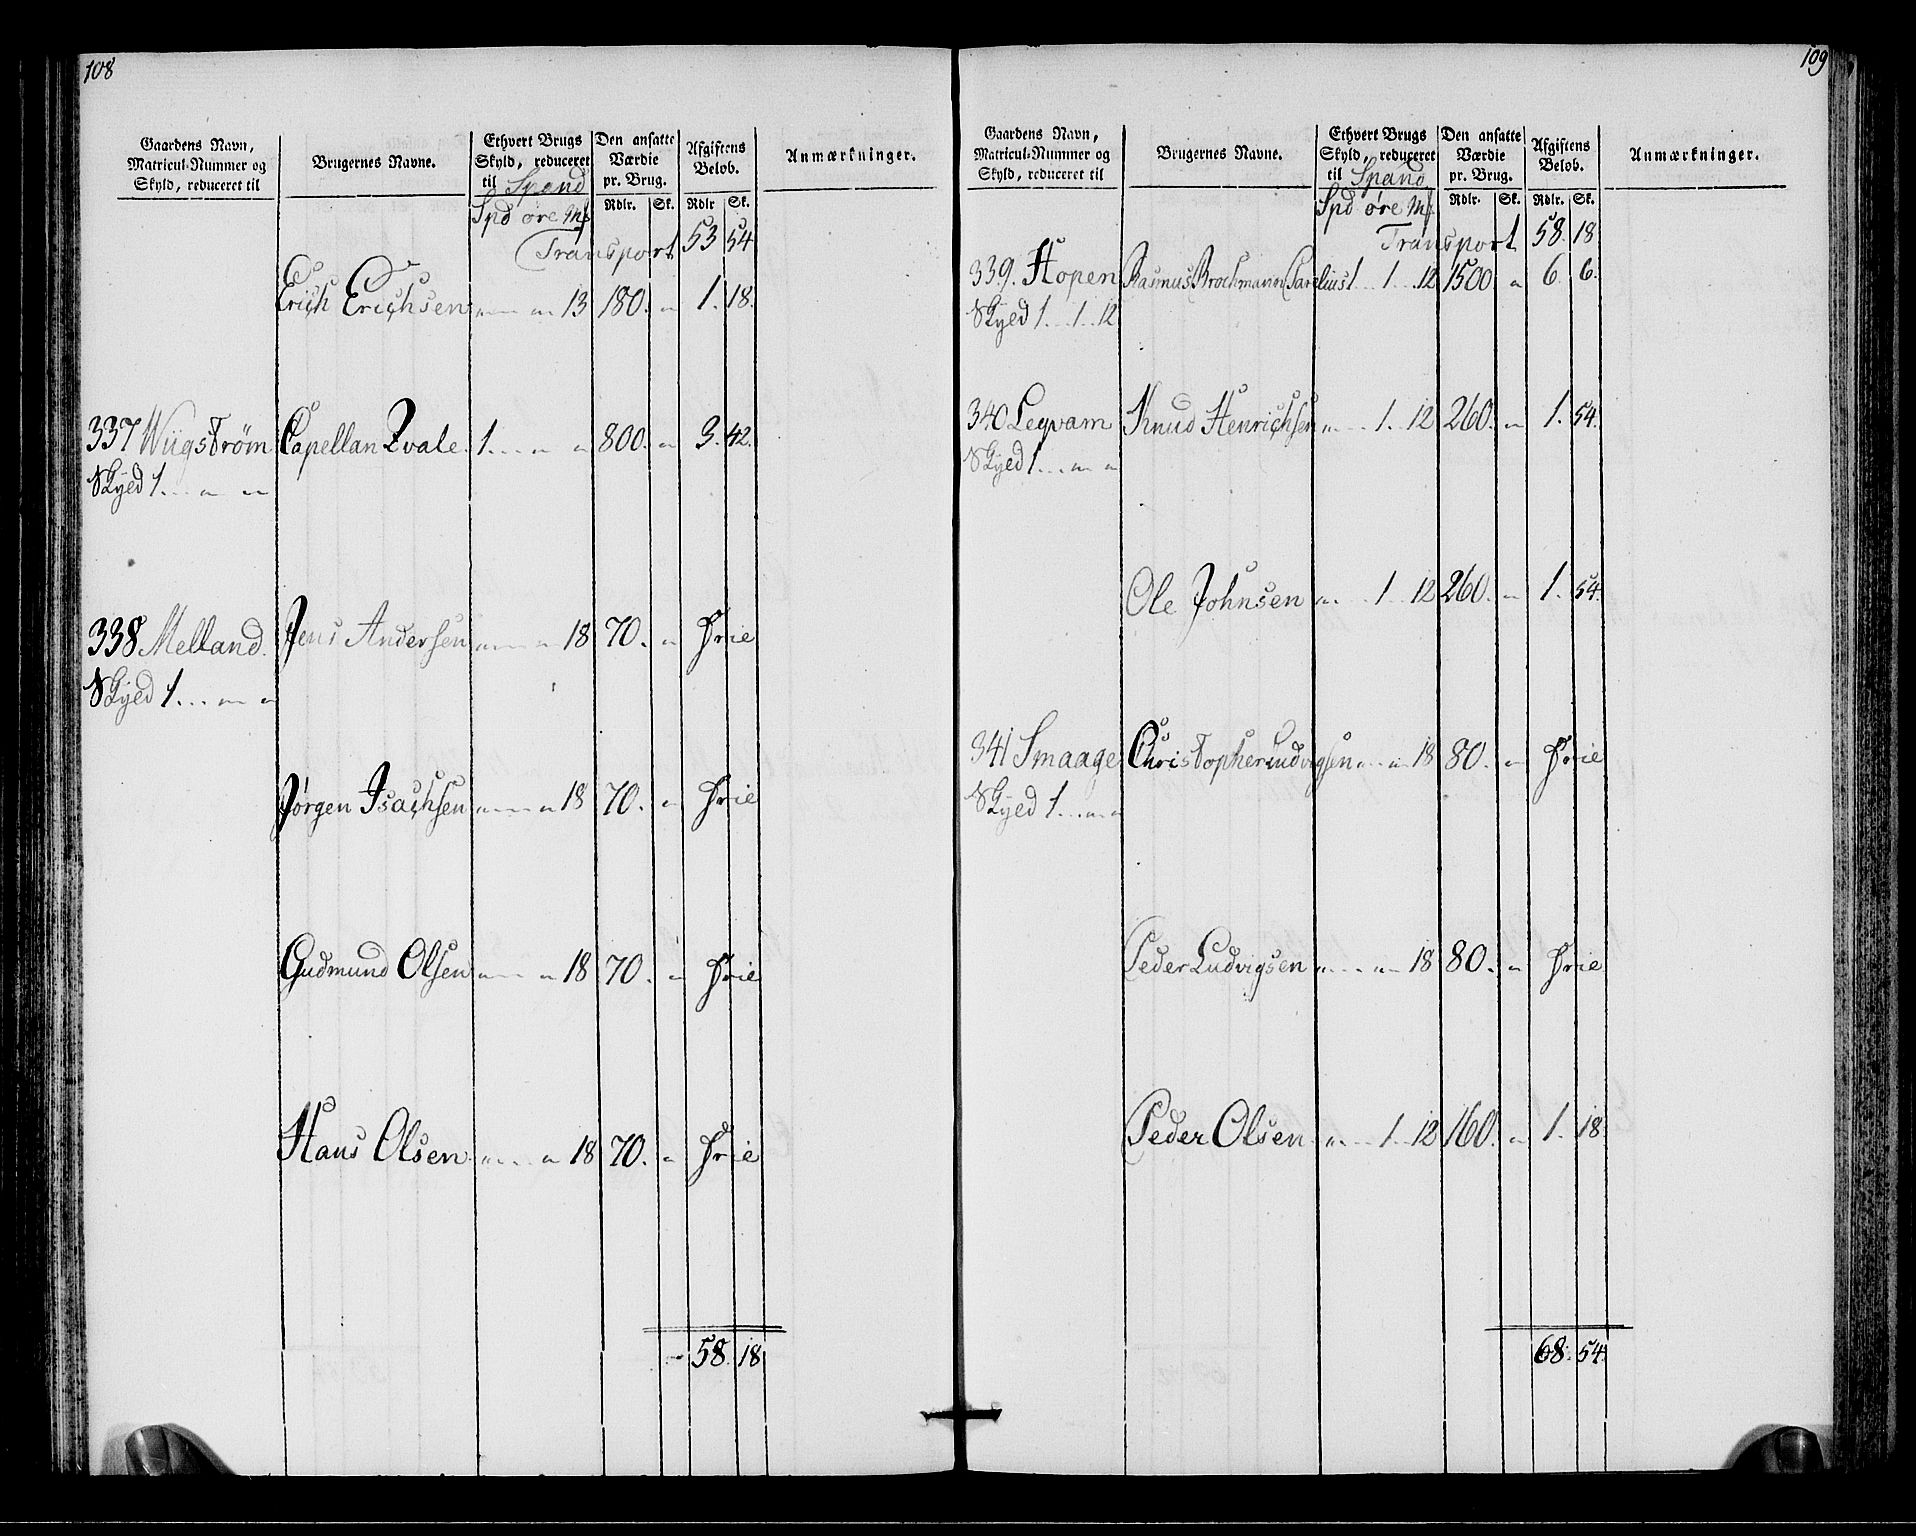 108
Gaardens Navn, Matricul-Nummer og Skyld, reduceret til
Brugernes Navne.
Ethvert Brugs Skyld, reduceret til Spand
Den ansatte Værdie pr. Brug.
Afgiftens Beløb.
Anmærkninger.
Spd øre Mk
Rdlr. Sk. Rdlr Sk.
Transport 53 54
Erich Erichsen " " 13 180. " 1. 18.
337 Wiigstrøm Capellan Qvale 1 " " 800. " 3. 42.
Skyld 1 " "
338 Melland. Jens Andersen " " 18 70. " Frie
Skyld 1 " "
Jørgen Isachsen " " 18 70. " Frie
Gudmund Olsen " " 18 70. " Frie
Hans Olsen " " 18 70. " Frie
58. 18
109
Gaardens Navn, Matricul-Nummer og Skyld, reduceret til
Brugernes Navne.
Ethvert Brugs Skyld, reduceret til Spand
Den ansatte Værdie pr. Brug.
Afgiftens Beløb.
Anmærkninger.
Spd øre Mk
Rdlr. Sk. Rdlr. Sk.
Transport 58. 18
339. Hopen Rasmus Brochmann Parelius 1 1 12 1500 " 6. 6.
Skyld 1 1 12
340 Leqvam Knud Henrichsen " 1 12 260. " 1. 54.
Skyld 1 " "
Ole Johnsen " 1 12 260. " 1. 54.
341 Smaage Christopher Ludvigsen " " 18 80. " Frie
Skyld 1 " "
Peder Ludvigsen " " 18 80. " Frie
Peder Olsen " 1 12 160. " 1. 18
68. 54.